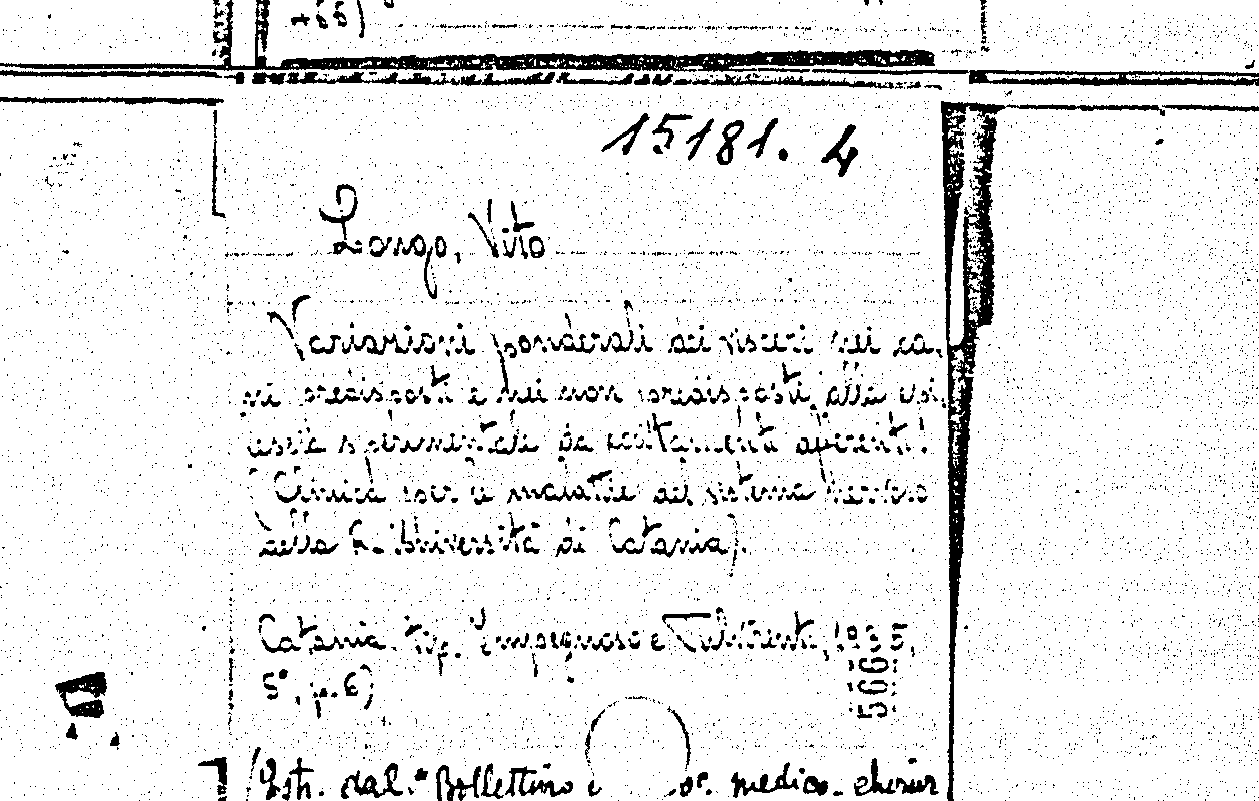 +65)
15181. 4
Longo, Vito
Variazioni ponderali dei visceri nei ca-
ni predisposti e nei non predisposti alla epi-
lessia sperimentale da eccitamenti afferenti.
(Clinica per le malattie del sistema nervoso
della R. Università di Catania).
Catania. tip. e 1935,
5°, p. 6)
5660
(Estr. dal "Bollettino medico-chirur